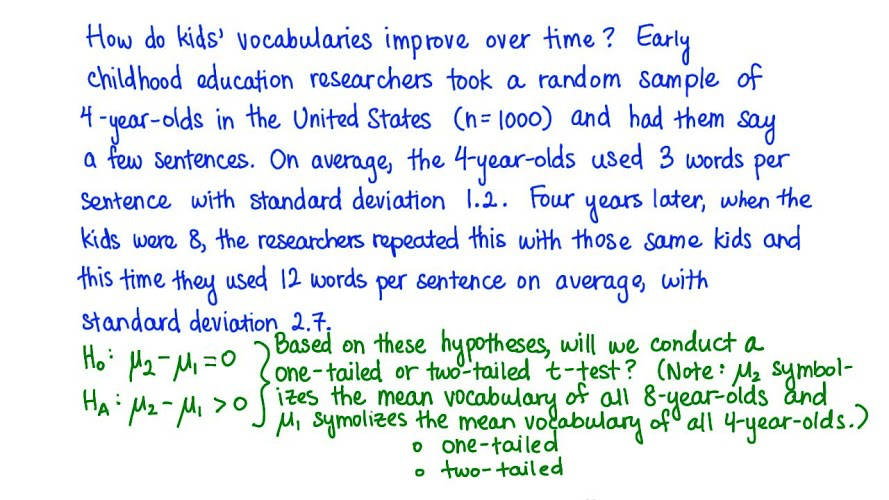 How do kids' vocabularies improve over time? Early
childhood education researchers took a random sample of
4-year-olds in the United States (n=1000) and had them say
a few sentences. On average, the 4-year-olds used 3 words per
sentence with standard deviation 1.2. Four years later, when the
kids were 8, the researchers repeated this with those same kids and
this time they used 12 words per sentence on average, with
standard deviation 2.7.
H₀: μ₂-μ₁=0
Hₐ: μ₂-μ₁>0
Based on these hypotheses, will we conduct a
one-tailed or two-tailed t-test? (Note: μ₂ symbol-
izes the mean vocabulary of all 8-year-olds and
μ₁ symolizes the mean vocabulary of all 4-year-olds.)
o one-tailed
o two-tailed